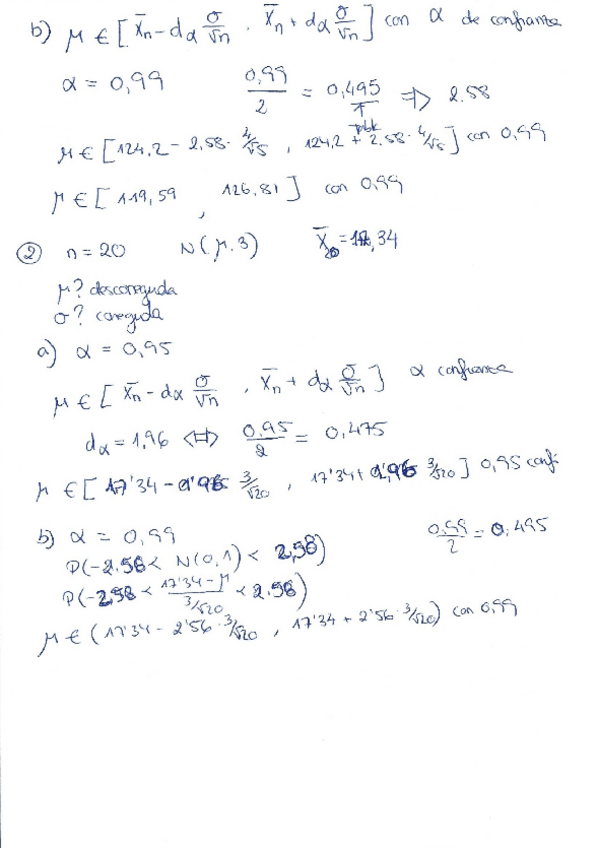 b) μ ∈ [ x̄n - dα σ/√n , x̄n + dα σ/√n ] con α de confianza
α = 0,99 0,99/2 = 0,495 ⇒ 2.58
μ ∈ [124,2 - 2,58· 4/√5 , 124,2 + 2.58· 4/√5 ] con 0,99
μ ∈ [ 119,59 , 126,81 ] con 0,99
② n = 20 N(μ.3) X̄20 = ,34
μ? desconocida
σ? conocida
a) α = 0,95
μ ∈ [ x̄n - dα σ/√n , x̄n + dα σ/√n ] α confianza
dα = 1,96 ⇔ 0,95/2 = 0,475
μ ∈ [ 17'34 - 1'96 3/√20 , 17'34 + 1,96 3/√20 ] 0,95 conf.
b) α = 0,99 0,99/2 = 0,495
P(-2.58 < N(0,1) < 2,58)
P(-2.58 < 17'34 - μ / 3/√20 < 2.58)
μ ∈ (17'34 - 2'56 · 3/√20 , 17'34 + 2'56 · 3/√20) con 0,99